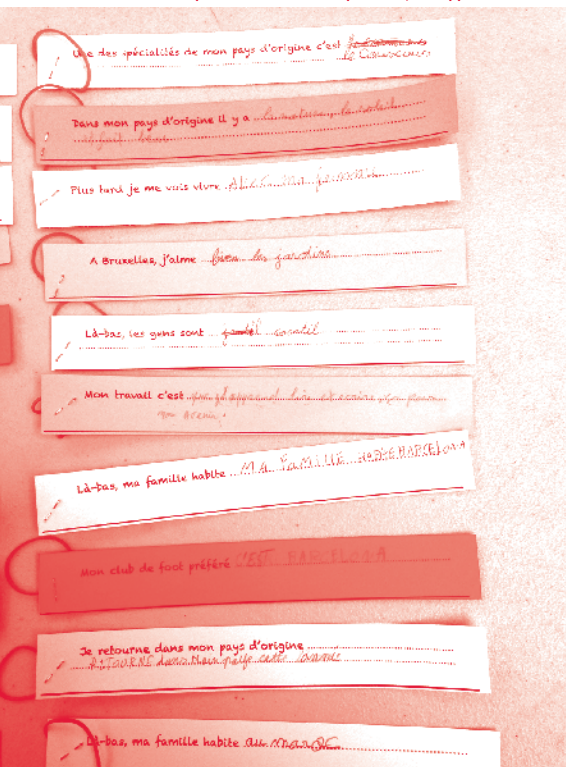 Une des spécialités de mon pays d'origine c'est
le Couscous
Dans mon pays d'origine il y a la nature, le soleil
il fait beau
Plus tard je me vais vivre AVEC ma femme
A Bruxelles, j'aime bien les jardins
Là-bas, les gens sont gentil
Mon travail c'est apprend lire et ecrire pour
mon avenir.
Là-bas, ma famille habite MA FAMILLE HABITE BARCELONA
Mon club de foot préféré C'EST BARCELONA
Je retourne dans mon pays d'origine
RETOURNE dans Mon cette année
Là-bas, ma famille habite au maroc